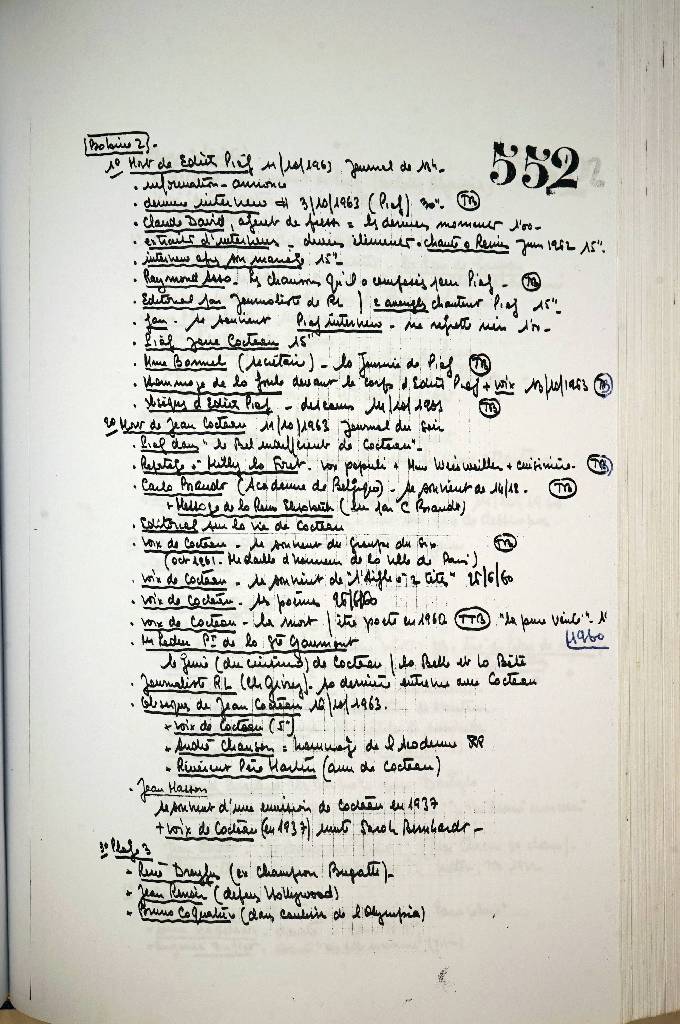 552
2
1° Mort de Edith Piaf 11/10/1963 Journal de 13h.
. information - annonce
. dernière interview # 3/10/1963 (Piaf) 30". TB
. Claude David, agent de presse = les derniers moments 1'00.
. extraits d'interviews - chante à Reims Juin 1962 15".
. interview après son mariage 15".
. Raymond Asso. les chansons qu'il a composées pour Piaf. TB
. Editorial par journaliste de RL / 2 aveugles chantent Piaf 15".
. se souvient Piaf interview - ne regrette rien 1'00.
. Piaf joue Cocteau 15"
. Mme Bonnel (secrétaire) - la journée de Piaf TB
. Hommage de la foule devant le corps d'Edith Piaf + voix 13/10/1963 TB
. Obsèques d'Edith Piaf - 14/10/1963 TB
2° Mort de Jean Cocteau 11/10/1963 Journal du soir
. Piaf dans "le Bel indifférent de Cocteau".
. Reportage à Milly la Forêt. vox populi + Mme Weisweiller + cuisinière. TB
. Carlo Bronde (Académie de Belgique) - se souvient de 14/18. TB
+ Message de la Reine Elisabeth (lu par C Bronde)
. Editorial sur la vie de Cocteau
. voix de Cocteau - se souvient du Groupe des Six TB
(oct 1961. Médaille d'honneur de la ville de Paris)
. voix de Cocteau - se souvient de "l'Aigle à 2 têtes" 25/6/60
. voix de Cocteau - les poèmes 25/6/60
. voix de Cocteau - la mort / être poète en 1960 TTB "la pure vérité". 1'
1960
. Pt de la Sté Gaumont
le génie (du cinéma) de Cocteau / la Belle et la Bête
. Journaliste RL - sa dernière entrevue avec Cocteau
. Obsèques de Jean Cocteau 16/10/1963.
+ voix de Cocteau (5")
+ André Chamson = hommage de l'Académie
+ Révérend Père Martin (ami de Cocteau)
. Jean Masson
se souvient d'une émission de Cocteau en 1937
+ voix de Cocteau (en 1937) imite Sarah Bernhardt -
3° Plage 3
. René Dreyfus (ex champion Bugatti) -
. Jean Renoir (depuis Hollywood)
. Bruno Coquatrix (dans coulisse de l'Olympia)